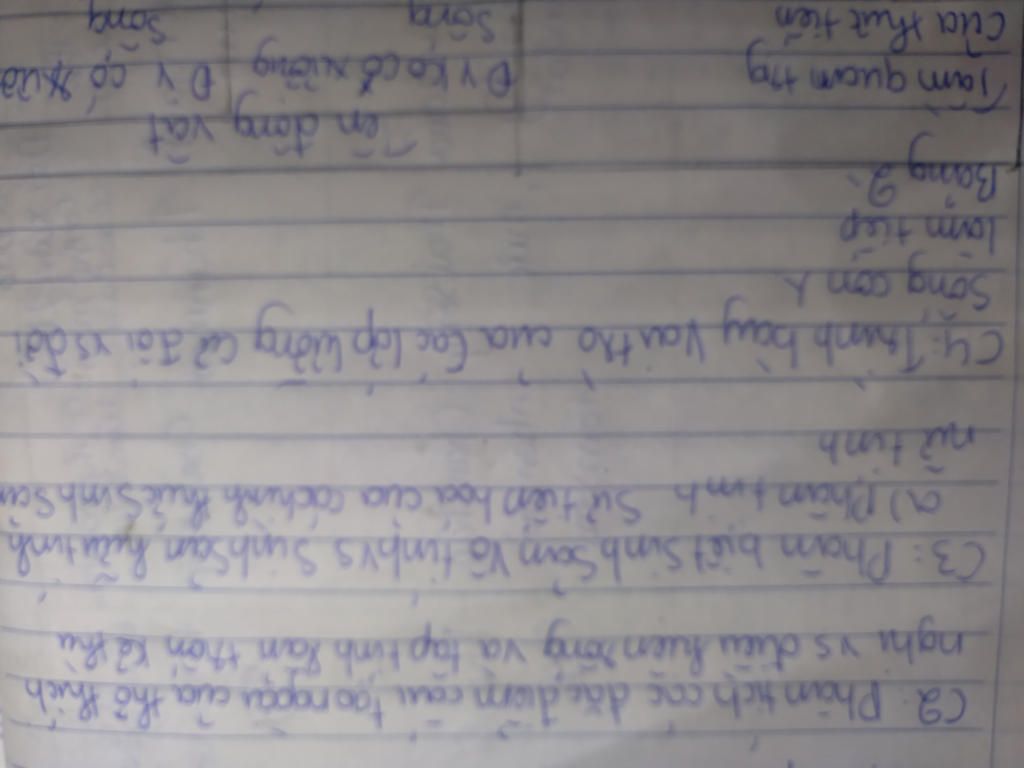 C2: Phân tích các đặc điểm cấu tạo ngoài của thỏ thích
nghi vs điều kiện sống và tập tính lẩn trốn kẻ thù
C3: Phân biệt sinh sản vô tính vs sinh sản hữu tính
a) Phân tính sự tiến hóa của các hình thức sinh sản
hữu tính
C4: Trình bày vai trò của các lớp lưỡng cư đối vs đời
sống con
làm tiếp
Bảng 2.
Tên động vật
Tầm quan trọg ĐV ko có xương ĐV có xươ
của thực tiễn sống sống